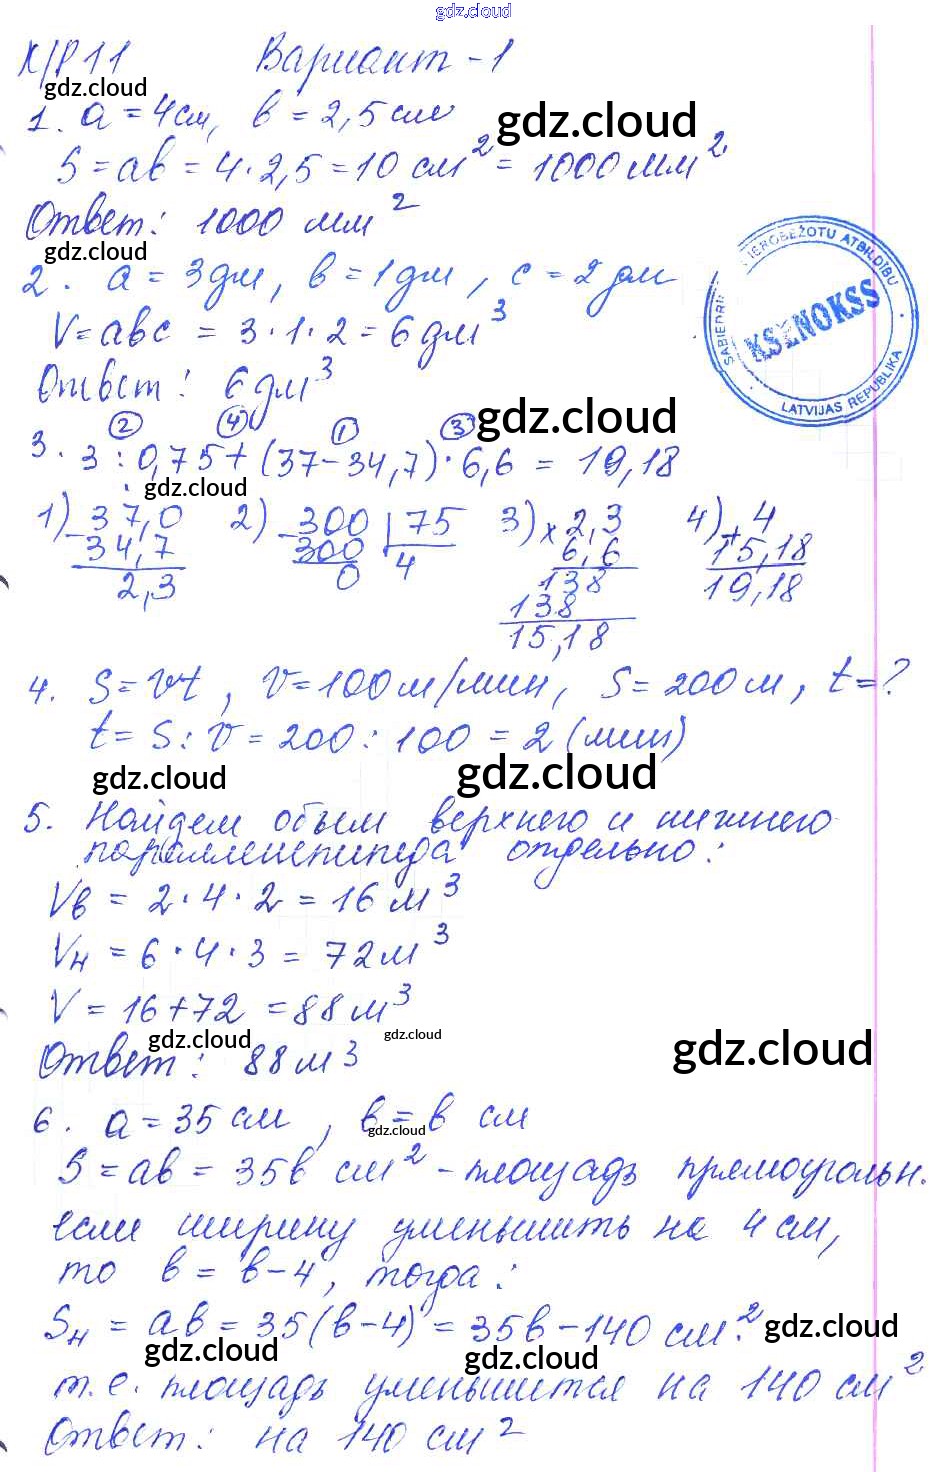 gdz.cloud
К/Р 11 Вариант - 1
gdz.cloud
1. a = 4 см, b = 2,5 см
gdz.cloud
S = ab = 4 · 2,5 = 10 см² = 1000 мм²
Ответ: 1000 мм²
gdz.cloud
2. a = 3 дм, b = 1 дм, c = 2 дм
V = abc = 3 · 1 · 2 = 6 дм³
Ответ: 6 дм³
SABIEDRĪ IEROBEŽOTU ATBILDĪBU
KSENOKSS
LATVIJAS REPUBLIKA
gdz.cloud
② ④ ① ③
3. 3 : 0,75 + (37 - 34,7) · 6,6 = 19,18
gdz.cloud
1) - 37,0 2) - 300 | 75 3) × 2,3 4) + 4
34,7 300 4 6,6 15,18
2,3 0 138 19,18
138
15,18
4. S = vt, v = 100 м/мин, S = 200 м, t = ?
t = S : v = 200 : 100 = 2 (мин)
gdz.cloud gdz.cloud
5. Найдем объем верхнего и нижнего
параллелепипеда отдельно:
Vв = 2 · 4 · 2 = 16 м³
Vн = 6 · 4 · 3 = 72 м³
V = 16 + 72 = 88 м³
gdz.cloud gdz.cloud gdz.cloud
Ответ: 88 м³
6. a = 35 см, b = b см
gdz.cloud
S = ab = 35b см² - площадь прямоугольн.
если ширину уменьшить на 4 см,
то b = b - 4, тогда:
Sн = ab = 35(b - 4) = 35b - 140 см².
gdz.cloud gdz.cloud gdz.cloud
т.е. площадь уменьшится на 140 см²
Ответ: на 140 см²